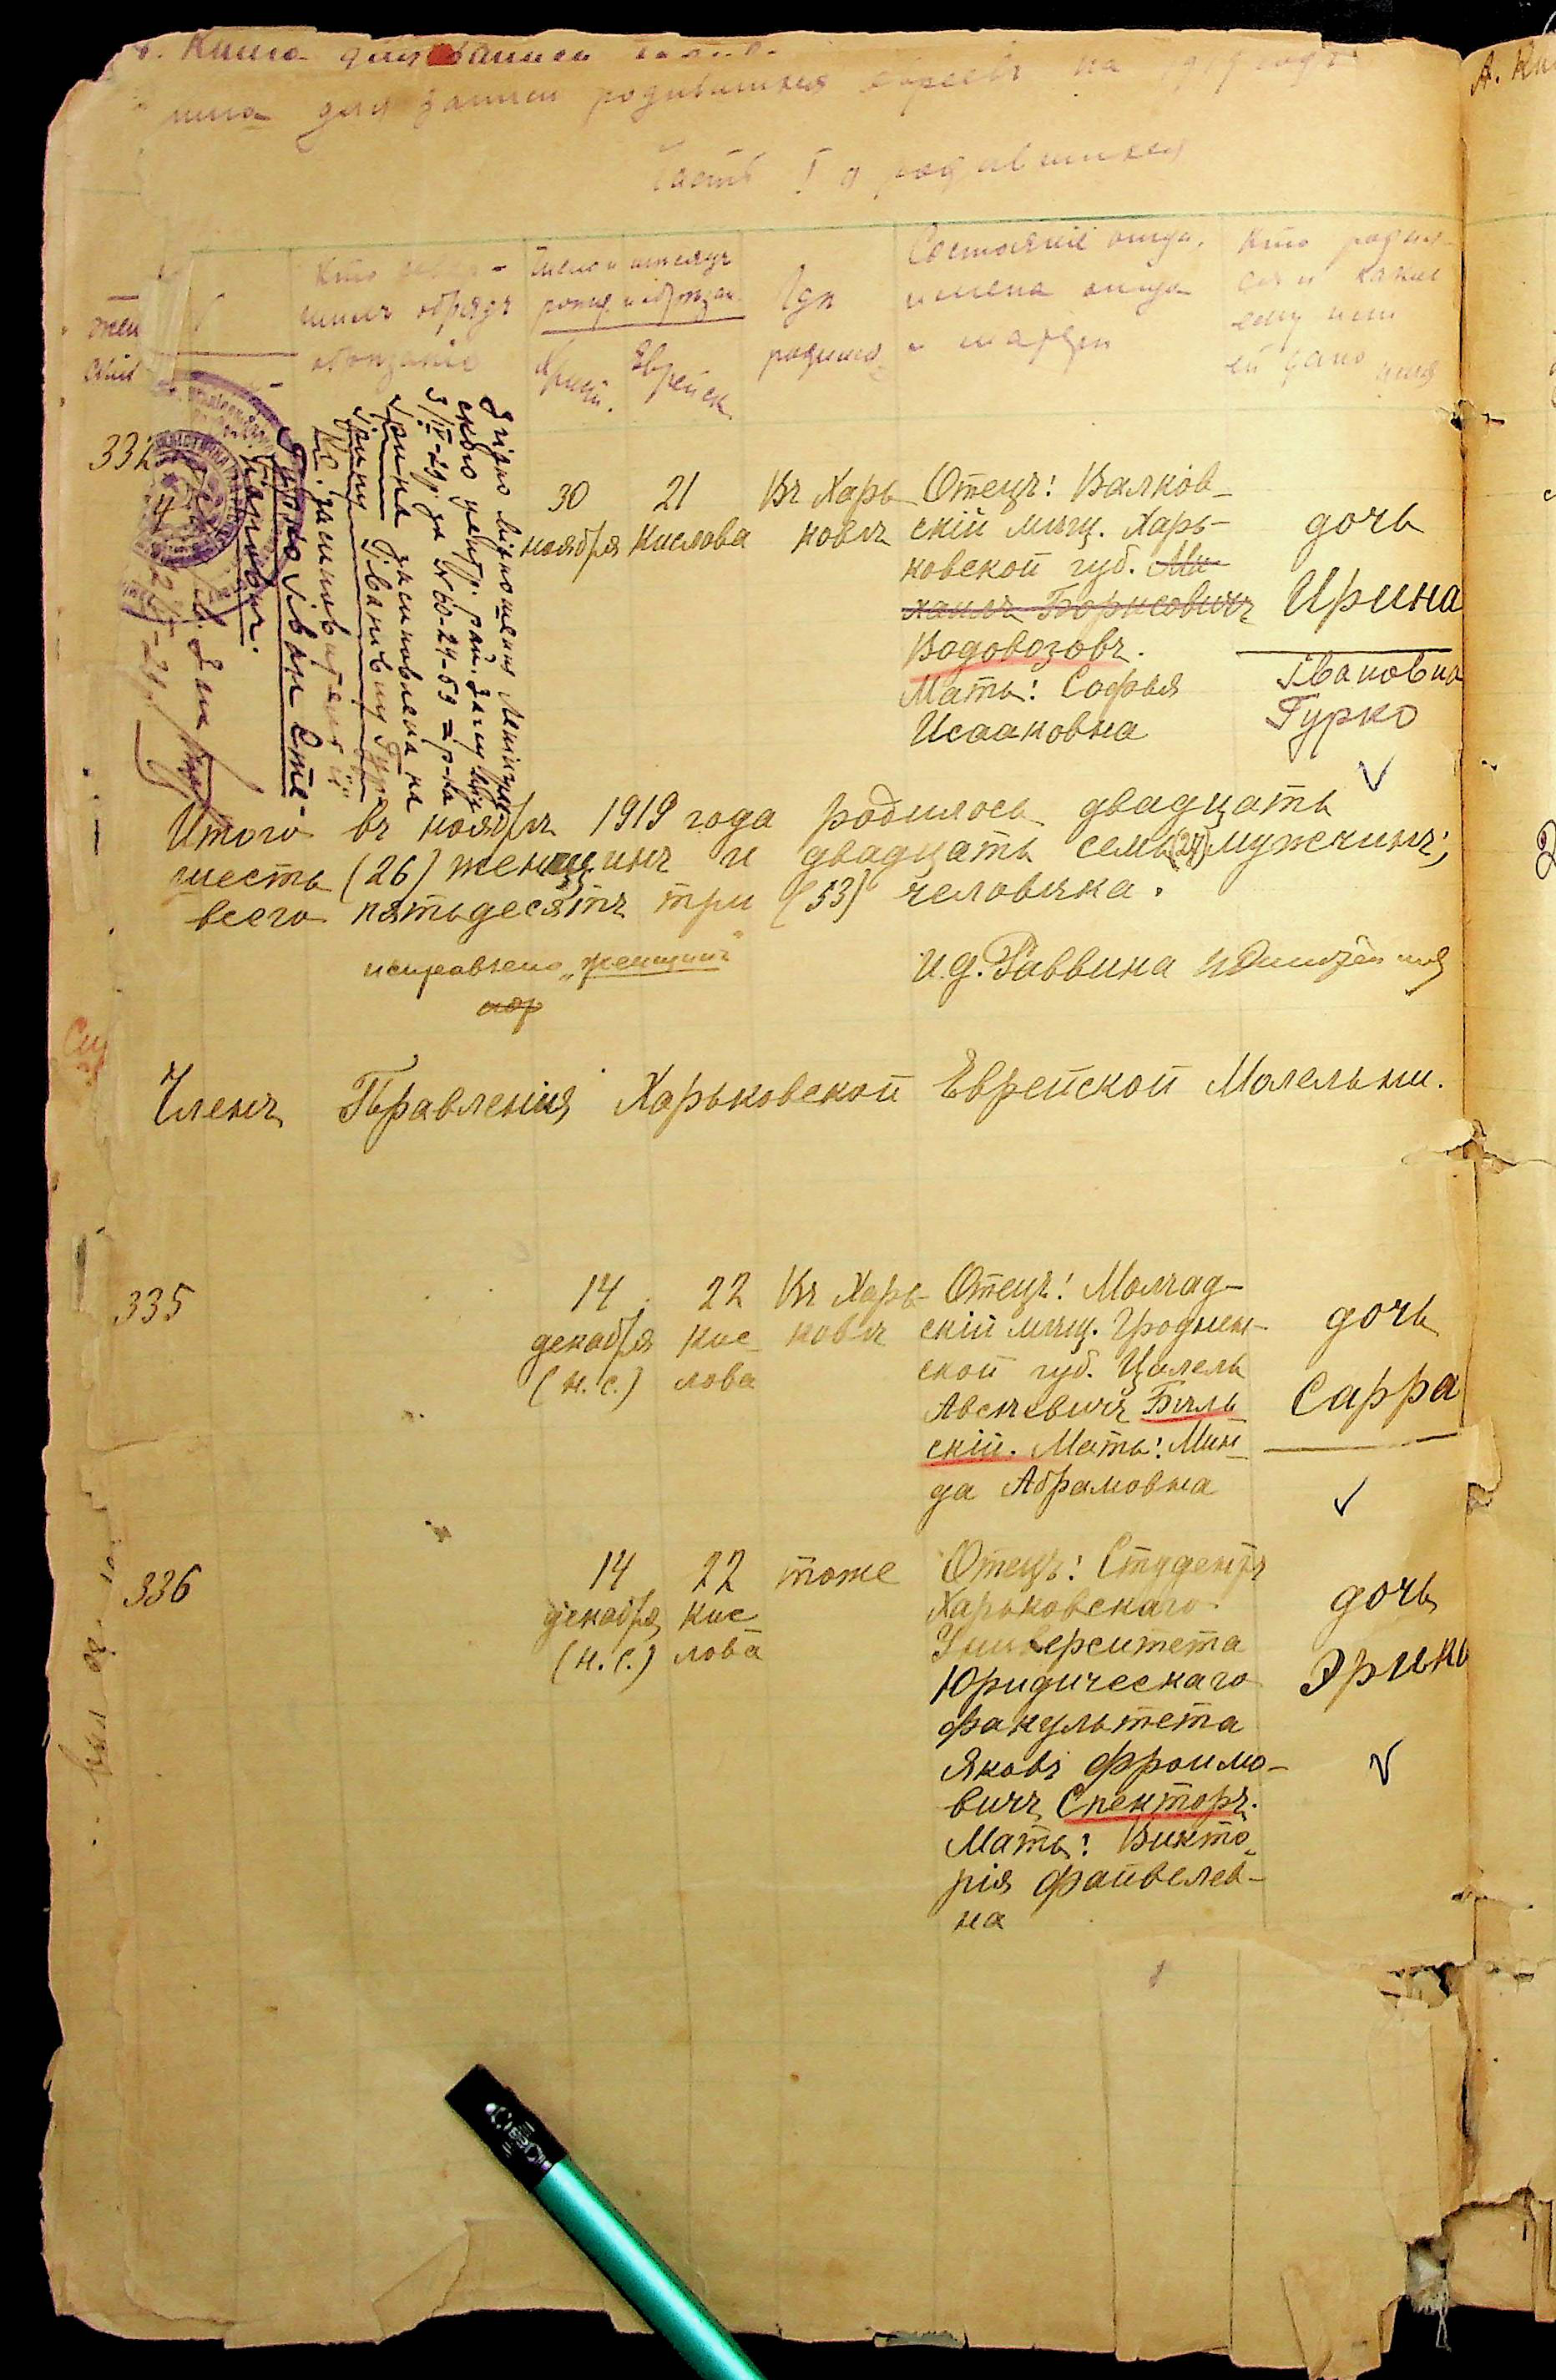 Книга для записи
для записи родившихся евреевъ на 1919 годъ
Часть I о родившихся
Кто совер-
шилъ обрядъ
обрѣзанія
Число и мѣсяцъ
рожд. и обрѣзан.
Христ.
Еврейск.
Гдѣ
родился
Состояніе отца,
имена отца
и матери
Кто родил-
ся и какое
ему или
ей дано имя
332
30
ноября
21
Кислова
Въ Харь-
ковѣ
Отецъ: Валков-
скій мѣщ. Харь-
ковской губ. Ми-
хаилъ Борисовичъ
Водовозовъ.
Мать: Софья
Исааковна
дочь
Ирина
Івановна
Гурко
Згідно відношення Ленінград
ського центр. рай. загсу від
3/IV-29р. за № 60-24-59 гр-ка
Ірина усиновлена на
Ірину Іванівну Гур-
ко. усиновителі
Гурко Іван Сте-
панович.
Итого въ ноябрѣ 1919 года родилось двадцать
шесть (26) женщинъ и двадцать семь (27) мужчинъ;
всего пятьдесятъ три (53) человѣка.
исправлено „женщинъ"
И.д. Раввина
Членъ Правленія Харьковской Еврейской Молельни.
335
14
декабря
(н.с.)
22
Кис-
лова
Въ Харь-
ковѣ
Отецъ: Молчад-
скій мѣщ. Гроднен-
ской губ. Цалель
Авсѣевичъ Бѣль
скій. Мать: Мин-
да Абрамовна
дочь
Сарра
336
14
декабря
(н.с.)
22
Кис-
лова
тоже
Отецъ: Студентъ
Харьковскаго
Университета
Юридическаго
факультета
Яковъ Фроимо-
вичъ Спекторъ.
Мать: Викто-
рія Файвелев-
на
дочь
Эрика